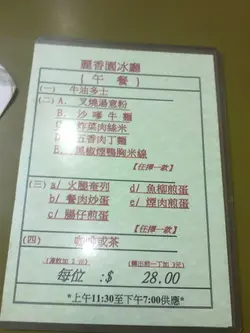 麗香園冰廳
{ 午 餐 }
(一) 牛油多士
(二) A. 叉燒湯意粉
B. 沙嗲牛麵
C. 炸菜肉絲米
D. 五香肉丁麵
E. 黑椒煙鴨胸米線
【任擇一款】
(三) a/ 火腿奄列 d/ 魚柳煎蛋
b/ 餐肉炒蛋 e/ 煙肉煎蛋
c/ 腸仔煎蛋
【任擇一款】
(四) 咖啡或茶
(凍飲加 2 元) (轉出前一丁加 3元)
每位 :$ 28.00
*上午11:30至下午7:00供應*